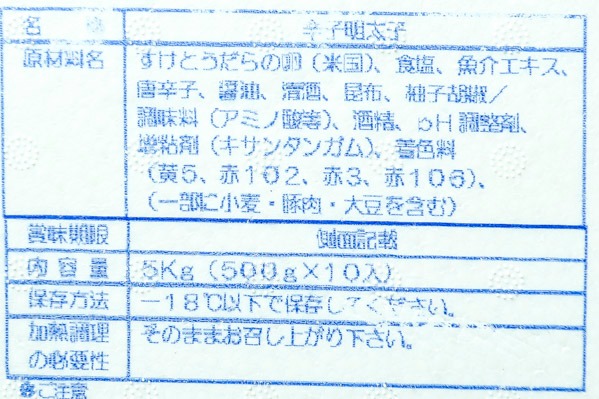 名 称 辛子明太子
原材料名 すけとうだらの卵（米国）、食塩、魚介エキス、
唐辛子、醤油、清酒、昆布、柚子胡椒／
調味料（アミノ酸等）、酒精、pH調整剤、
増粘剤（キサンタンガム）、着色料
（黄5、赤102、赤3、赤106）、
（一部に小麦・豚肉・大豆を含む）
賞味期限 側面記載
内容量 5Kg（500g×10入）
保存方法 －18℃以下で保存してください。
加熱調理 そのままお召し上がり下さい。
の必要性
※ご注意